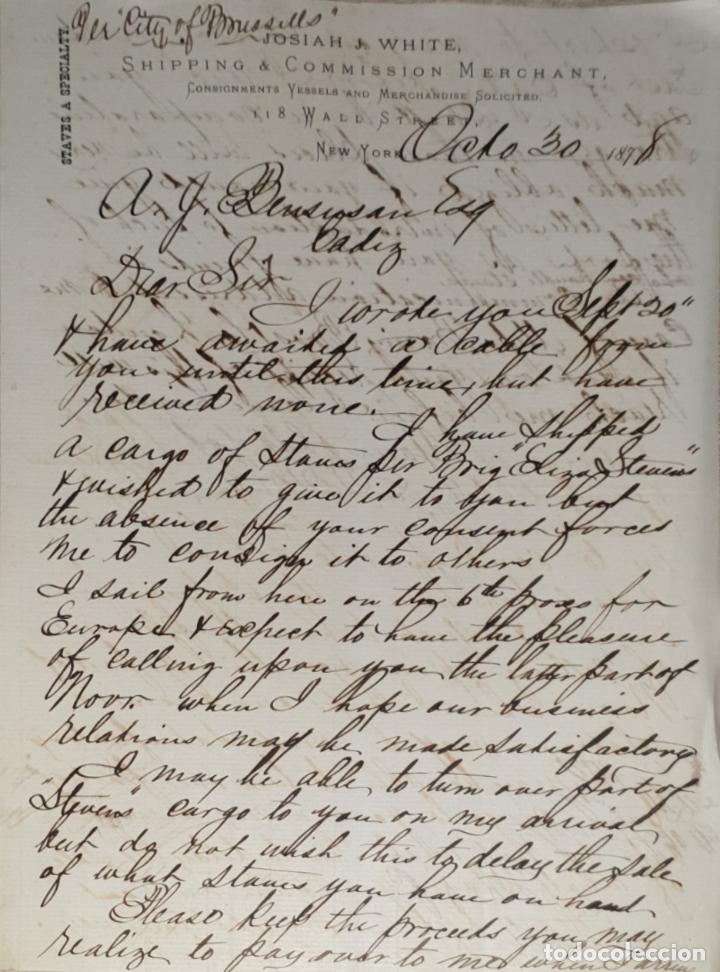 Per "City of Brussells"
STAVES A SPECIALTY.
JOSIAH J. WHITE,
SHIPPING & COMMISSION MERCHANT,
CONSIGNMENTS VESSELS AND MERCHANDISE SOLICITED,
118 WALL STREET,
NEW YORK Octo 30 1878
A. J. Bensusan Esq
Cadiz
Dear Sir
I wrote you Sept 30"
& have awaited a cable from
you until this time, but have
received none.
I have shipped
a cargo of staves per Brig "Eliza Stevens"
& wished to give it to you but
the absence of your consent forces
me to consign it to others
I sail from here on the 6th proxo for
Europe & expect to have the pleasure
of calling upon you the latter part of
Novr. when I hope our business
relations may be made satisfactory
I may be able to turn over part of
"Stevens" cargo to you on my arrival
but do not wish this to delay the sale
of what staves you have on hand
Please keep the proceeds you may
realize to pay over to me when
todocoleccion.net